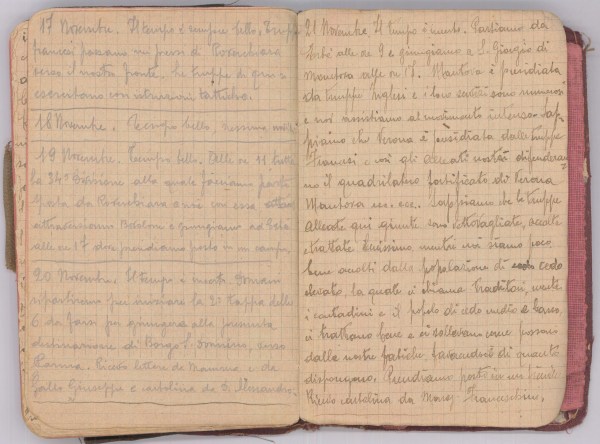 17 Novembre. Il tempo è sempre bello. Truppe
francesi passano nei pressi di Rosenchiara
verso il nostro fronte. Le truppe di qui si
esercitano con istruzioni tattiche.
18 Novembre. Tempo bello, nessuna novità
19 Novembre. Tempo bello. Alle ore 11 tutta
la 34ª Divisione alla quale facciamo parte
parte da e noi con essa
attraversiamo e giungiamo ad Este
alle ore 17 dove prendiamo posto in un campo.
20 Novembre. Il tempo è incerto. Domani
ripartiremo per iniziare la 2ª tappa delle
6 da farsi per giungere alla presunta
destinazione di Borgo S. Donnino, verso
Parma. Ricevo lettere da Mamma e da
Gallo Giuseppe e cartolina da
21 Novembre. Il tempo è incerto. Partiamo da
Este alle ore 9 e giungiamo a S. Giorgio di
Mantova alle ore 17. Mantova è presidiata
da truppe inglesi e i loro sono numerosi
e noi assistiamo al movimento intenso. Sap-
piamo che Verona è presidiata dalle truppe
Francesi e così gli Alleati nostri difenderan-
no il quadrilatero fortificato di Verona
Mantova ecc. ecc. Sappiamo che le truppe
Alleate qui giunte son vettovagliate, accolte
e trattate benissimo mentre noi siamo poco
bene accolti dalla popolazione di cedo
elevato, la quale ci chiama traditori, mentre
i contadini e il popolo di cedo medio e basso,
ci trattano bene e ci sollevano come possono
dalle nostre fatiche, favorendoci di quanto
dispongono. Prendiamo posto in un
Ricevo cartolina da Franceschini.